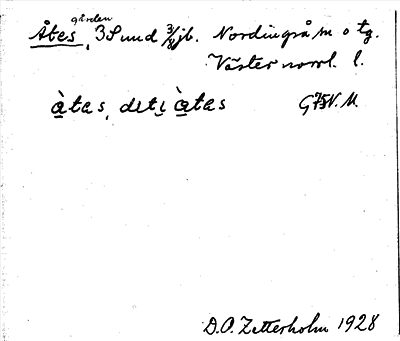 gården
Åtes, 3 Sund 3/8 jb. Nordingrå sn o tg.
Västernorrl. l.
àtas, deti àtas G75V. M.
D.O. Zetterholm 1928